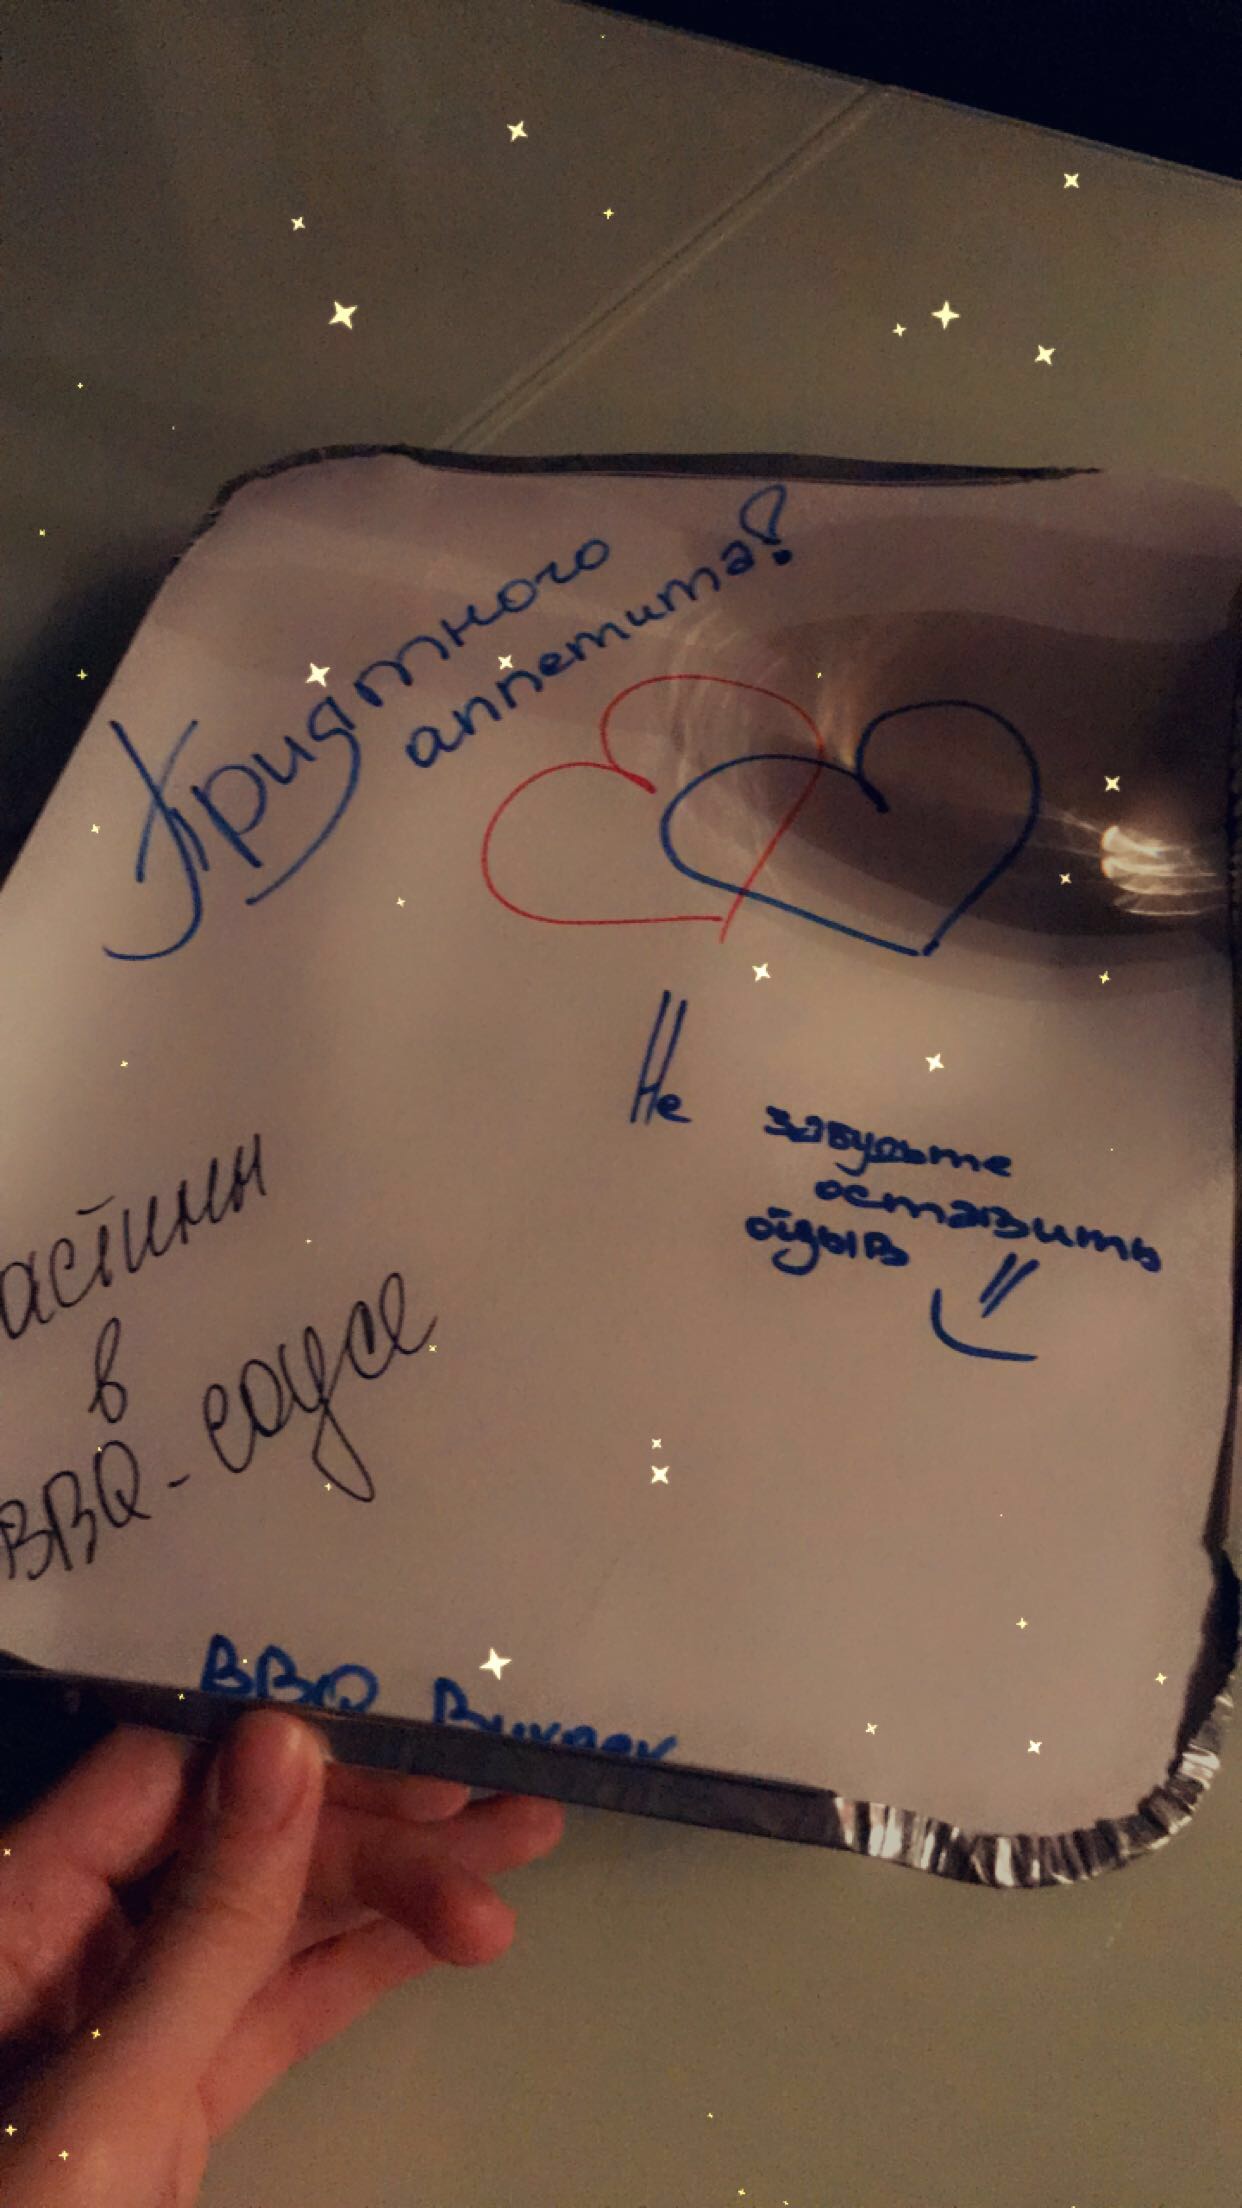 Приятного
аппетита!
Не забудьте
оставить
отзыв
в
BBQ-соусе
BBQ